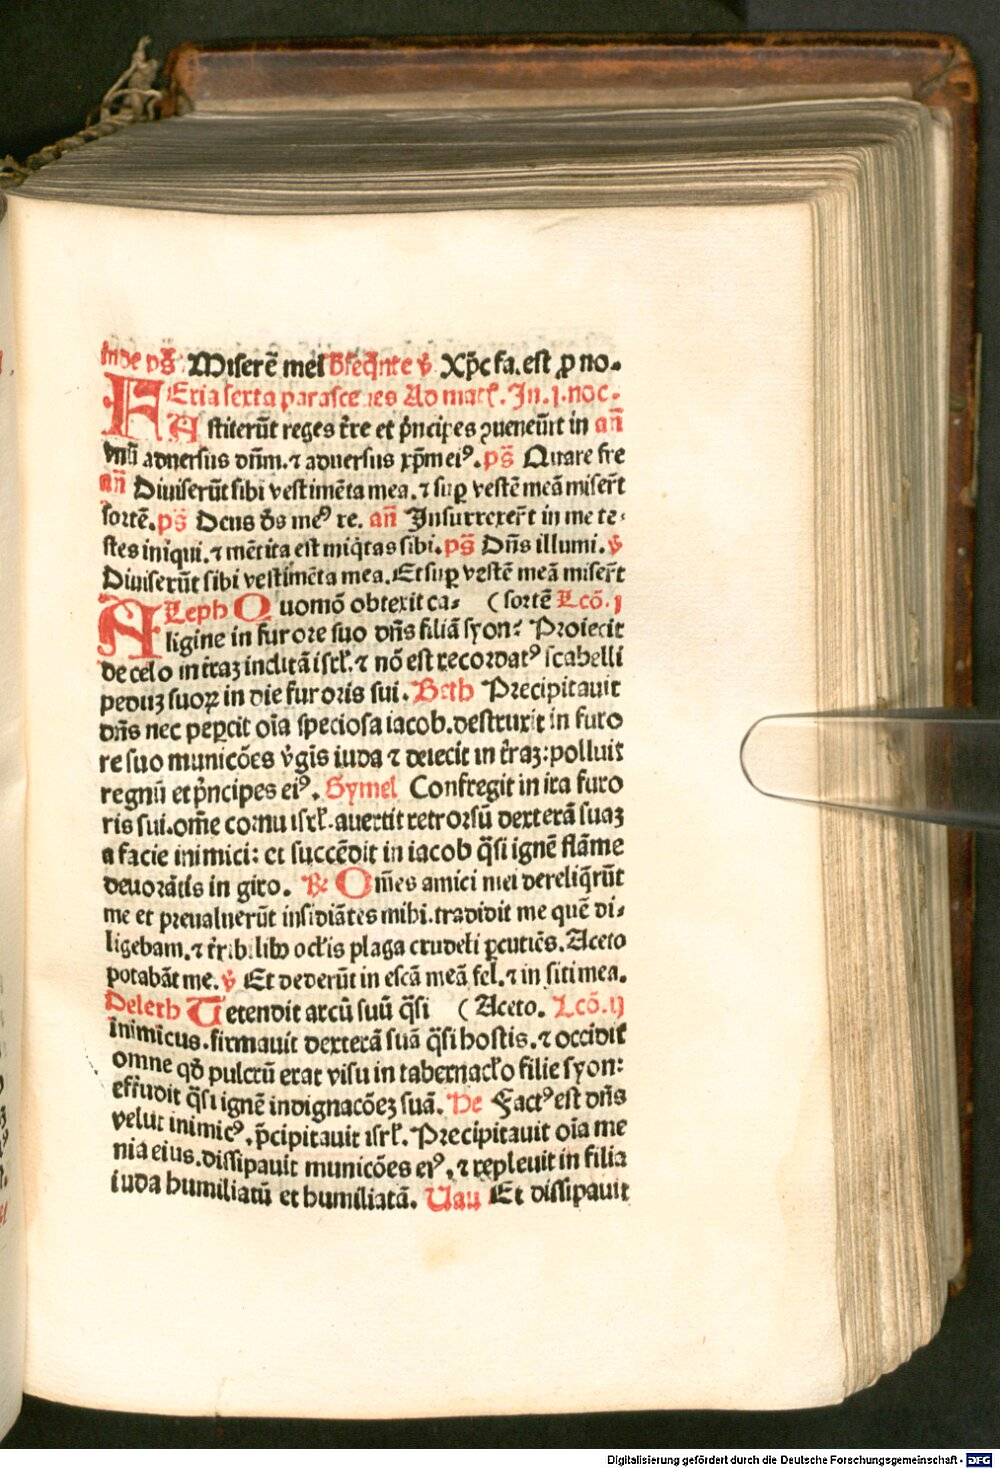 Inde pſ̄ Miserē mei Bn̄edicite v̄ Xp̄c fa. est ꝓ no.
FEria sexta parasceues Ad mat̄. In .j. noc.
Astiterūt reges t̄re et p̄ncipes ꝯuenerūt in an̄
vnū aduersus dn̄m. ⁊ aduersus xp̄m eiꝰ. ps̄ Quare fre
an̄ Diuiserūt sibi vestimēta mea. ⁊ suꝑ vestē meā miser̄t
sortē. ps̄ Deus ds̄ meꝰ re. an̄ Insurrexer̄t in me te⸗
stes iniqui. ⁊ mētita est iniq̄tas sibi. ps̄ Dn̄s illumi. v̄
Diuiserūt sibi vestimēta mea. Et suꝑ vestē meā miser̄t
ALeph Quomō obtexit ca⸗ (sortē Lcō. j
ligine in furore suo dn̄s filiā syon: Proiecit
de celo in t̄raꝫ inclitā isrl̄. ⁊ nō est recordatꝰ scabelli
peduꝫ suoꝝ in die furoris sui. Beth Precipitauit
dn̄s nec peꝑcit oīa speciosa iacob. destruxit in furo
re suo municōes v̄gis iuda ⁊ deiecit in t̄raꝫ: polluit
regnū et p̄ncipes eiꝰ. Gymel Confregit in ira furo
ris sui. om̄e cornu isrl̄. auertit retrorsū dexterā suaꝫ
a facie inimici: et succēdit in iacob q̄si ignē flāme
deuorātis in giro. ℞ Om̄es amici mei dereliq̄rūt
me et preualuerūt insidiātes mihi. tradidit me quē di⸗
ligebam. ⁊ t̄rib̄libꝰ ocl̄is plaga crudeli ꝑcutiēs. Aceto
potabāt me. v̄ Et dederūt in escā meā fel. ⁊ in siti mea.
Deleth Tetendit arcū suū q̄si (Aceto. Lcō. ij
inimicus. firmauit dexterā suā q̄si hostis. ⁊ occidit
omne qd̄ pulcrū erat visu in tabernacl̄o filie syon:
effudit q̄si ignē indignacōeꝫ suā. He Factꝰ est dn̄s
velut inimicꝰ. p̄cipitauit isrl̄. Precipitauit oīa me
nia eius. dissipauit municōes eiꝰ. ⁊ repleuit in filia
iuda humiliatū et humiliatā. Uau Et dissipauit
Digitalisierung gefördert durch die Deutsche Forschungsgemeinschaft - DFG